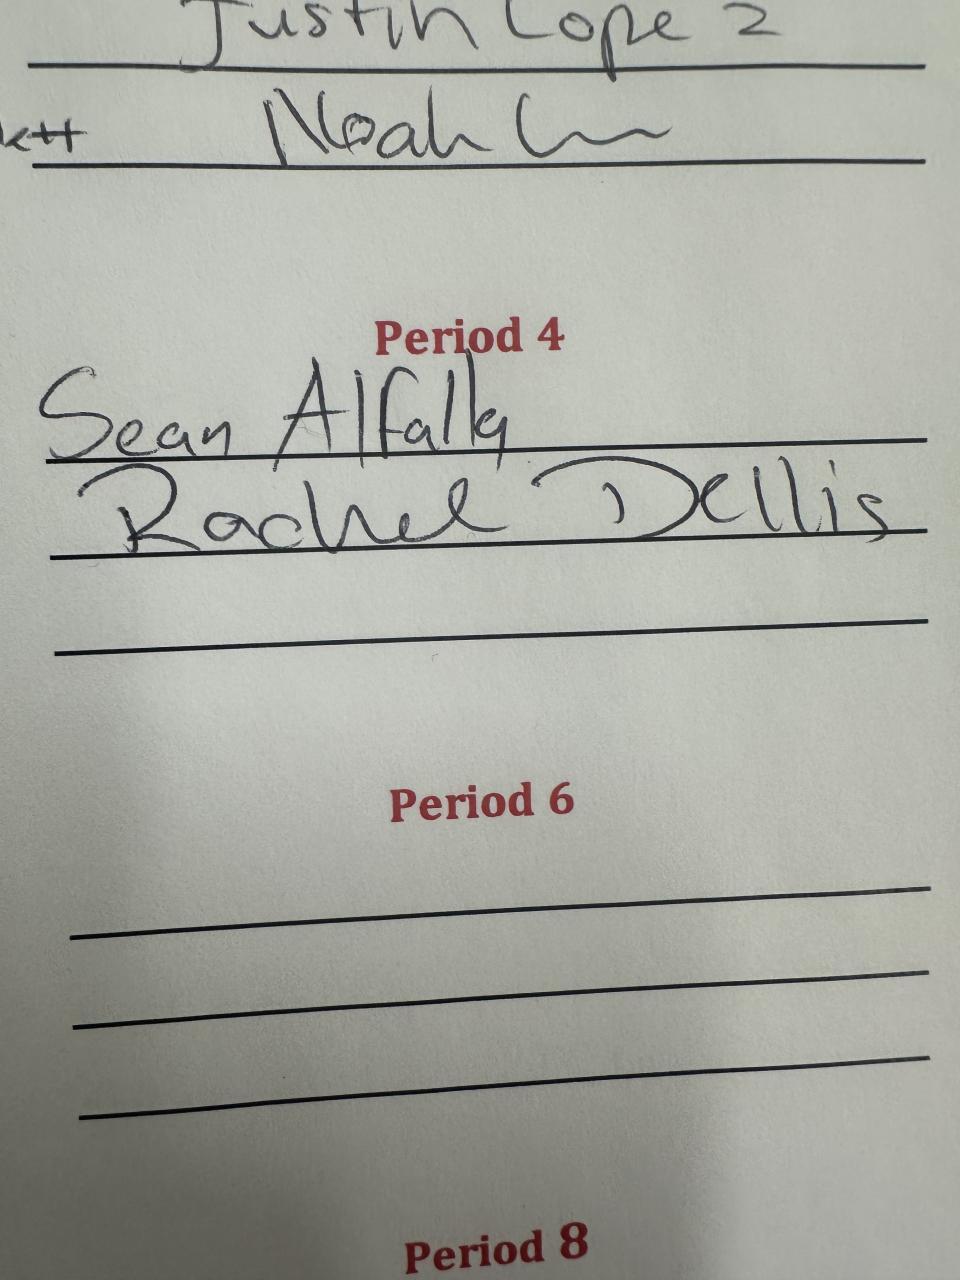 Justin Lopez
Noah
Period 4
Sean Alfalla
Rachel Dellis
Period 6
Period 8